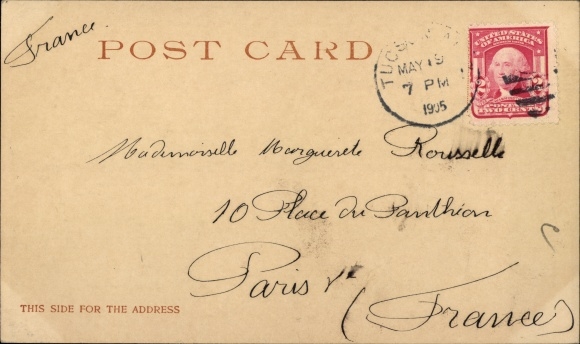 France
POST CARD
TUCSON
MAY 19
7 PM
1905
UNITED STATES
OF AMERICA
2 2
TWO CENTS
Mademoiselle Marguerete Rousselle
10 Place du Panthéon
Paris Ve
(France)
THIS SIDE FOR THE ADDRESS